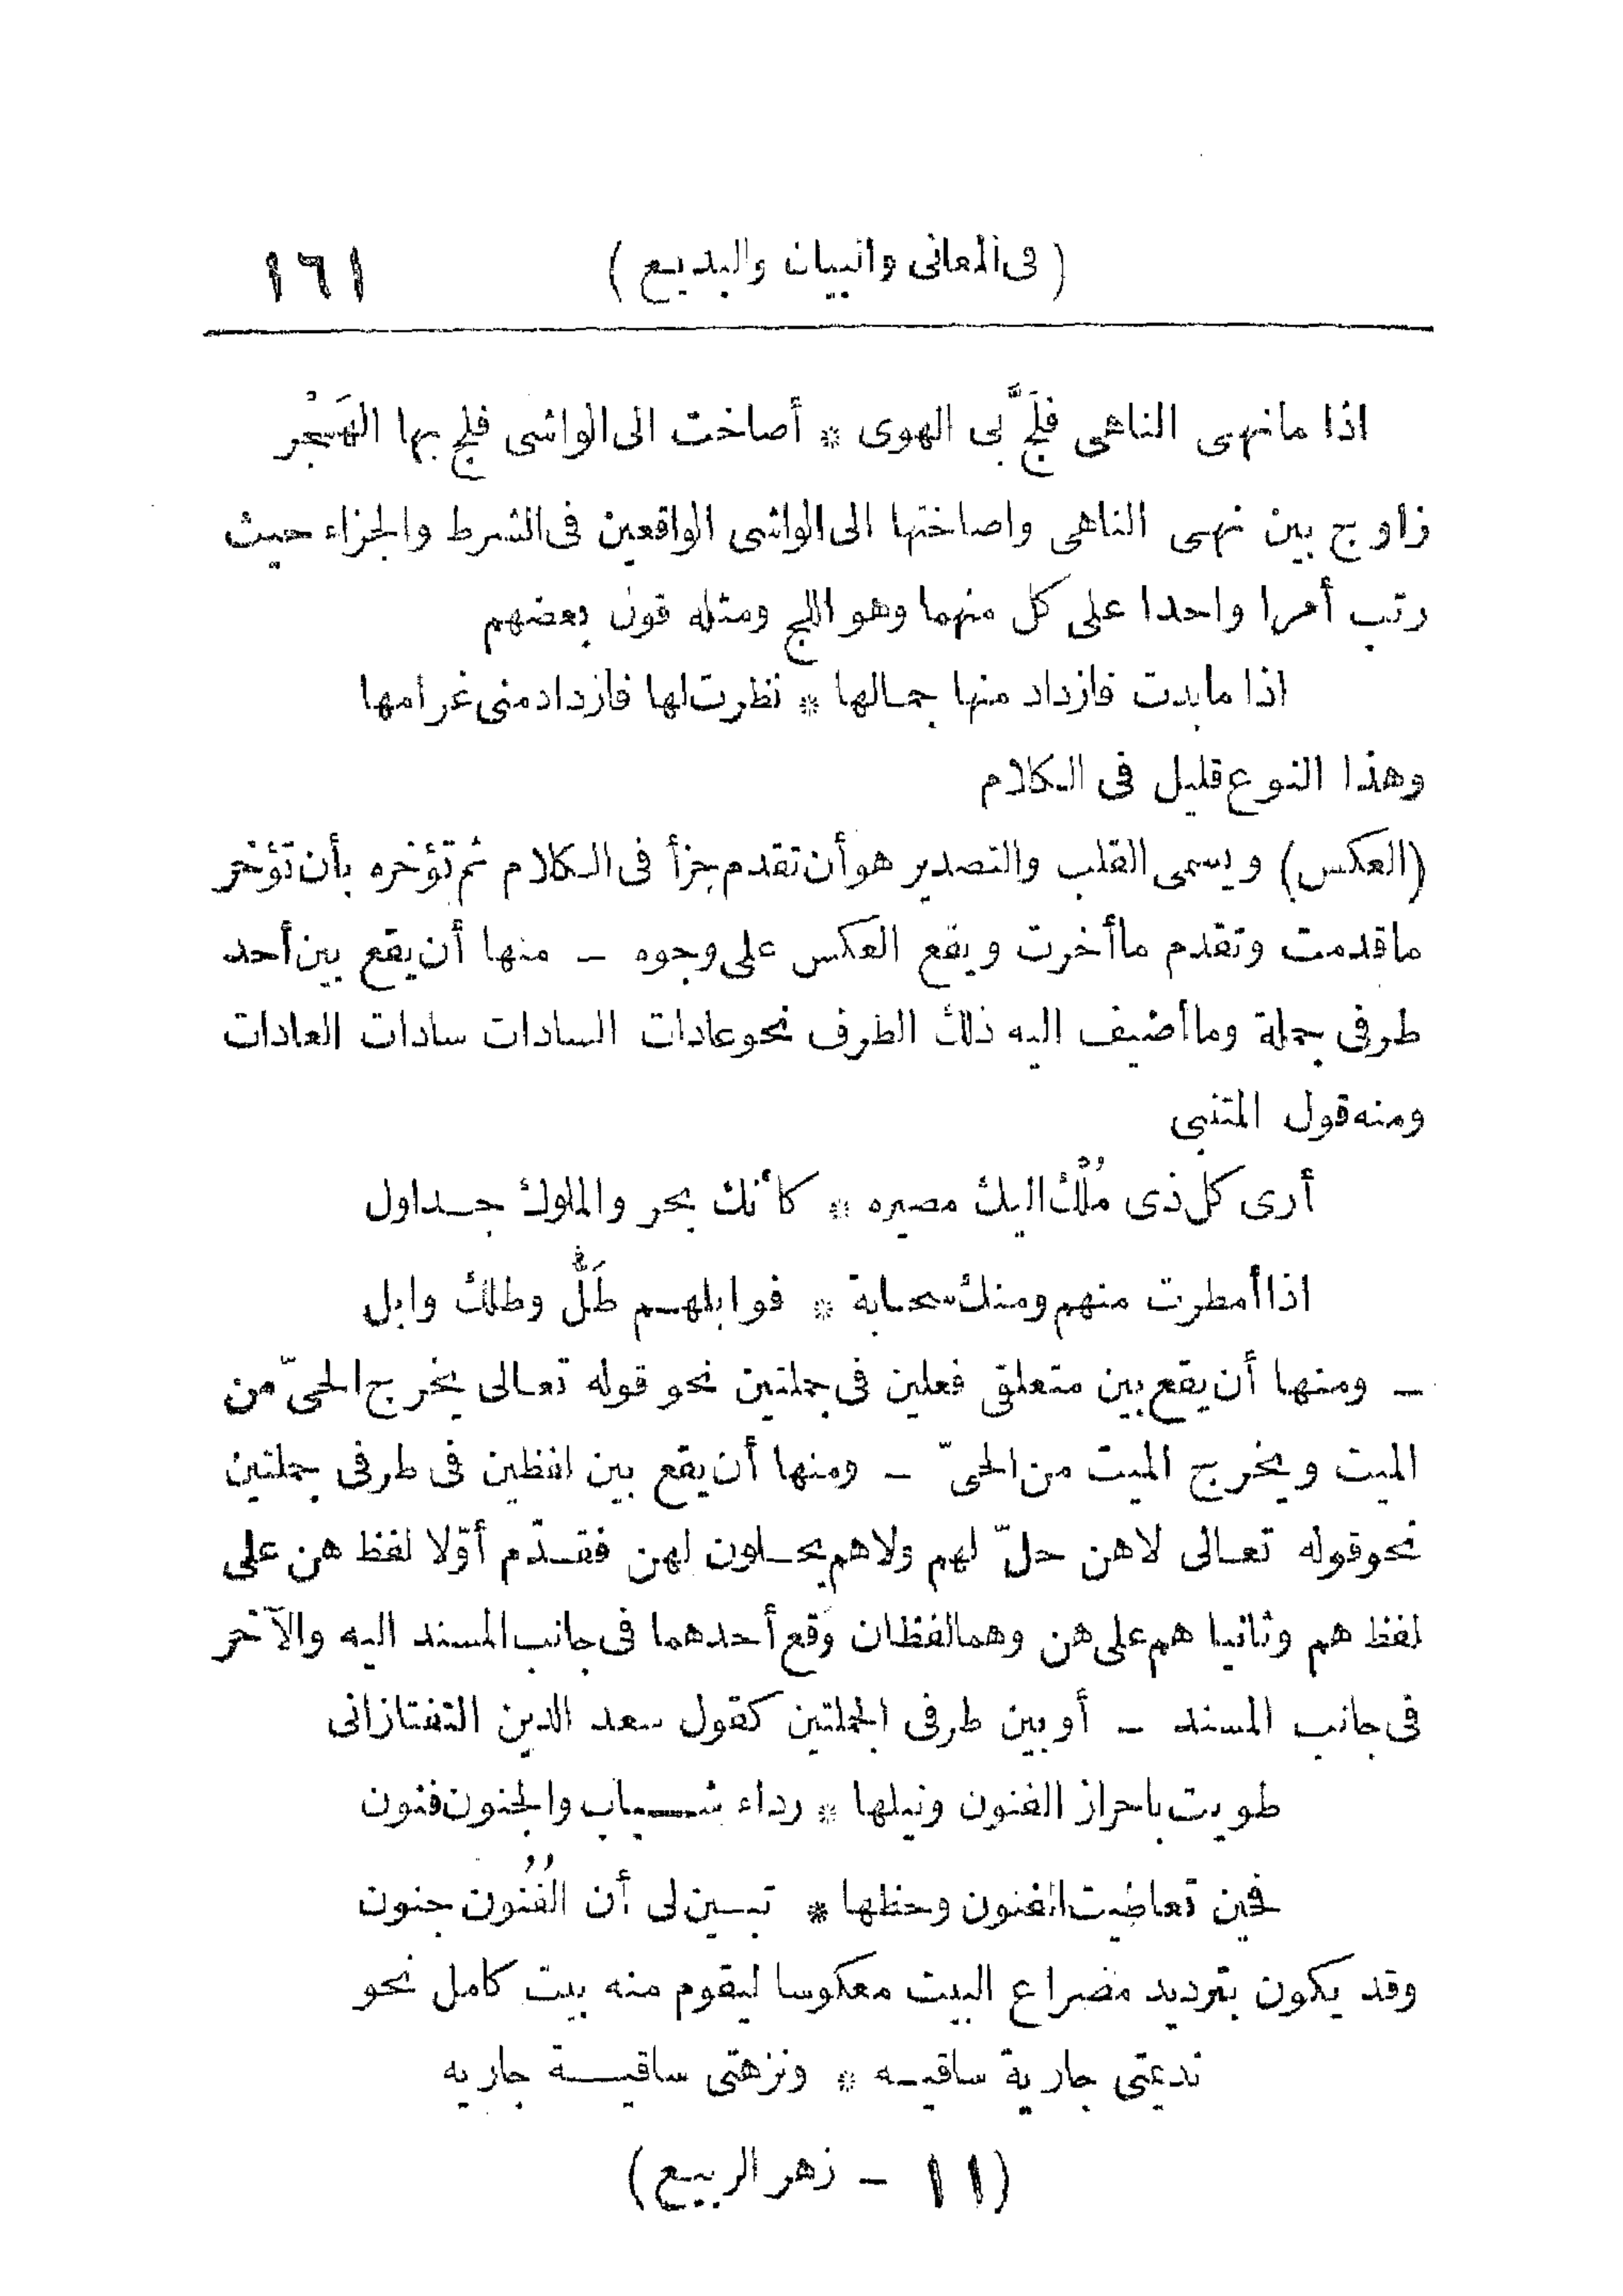 (فى المعانى والبيان والبديع) ١٦١
اذا ما نهى الناهى فلَجَّ بى الهوى * أصاخت الى الواشى فلج بها الهَجْر
زاوج بين نهى الناهى واصاختها الى الواشى الواقعين فى الشرط والجزاء حيث
رتب أمرا واحدا على كل منهما وهو اللج ومثله قول بعضهم
اذا ما بدت فازداد منها جمالها * نظرت لها فازداد منى غرامها
وهذا النوع قليل فى الكلام
(العكس) ويسمى القلب والتصدير هو أن تقدم جزأ فى الكلام ثم تؤخره بأن تؤخر
ما قدمت وتقدم ما أخرت ويقع العكس على وجوه - منها أن يقع بين أحد
طرفى جملة وما أضيف اليه ذلك الطرف نحو عادات السادات سادات العادات
ومنه قول المتنبى
أرى كل ذى مُلْك اليك مصيره * كأنك بحر والملوك جداول
اذا أمطرت منهم ومنك سحابة * فوابلهم طَلٌّ وطلك وابل
- ومنها أن يقع بين متعلق فعلين فى جملتين نحو قوله تعالى يخرج الحىّ من
الميت ويخرج الميت من الحىّ - ومنها أن يقع بين لفظين فى طرفى جملتين
نحو قوله تعالى لا هن حلّ لهم ولا هم يحلون لهن فقدّم أوّلا لفظ هن على
لفظ هم وثانيا هم على هن وهما لفظان وقع أحدهما فى جانب المسند اليه والآخر
فى جانب المسند - أو بين طرفى الجملتين كقول سعد الدين التفتازانى
طويت باحراز الفنون ونيلها * رداء شباب والجنون فنون
فحين تعاطيت الفنون وحظها * تبين لى أن الفُنُون جنون
وقد يكون بترديد مضراع البيت معكوسا ليقوم منه بيت كامل نحو
نديمتى جارية ساقيه * ونزهتى ساقية جاريه
(١١ - زهر الربيع)